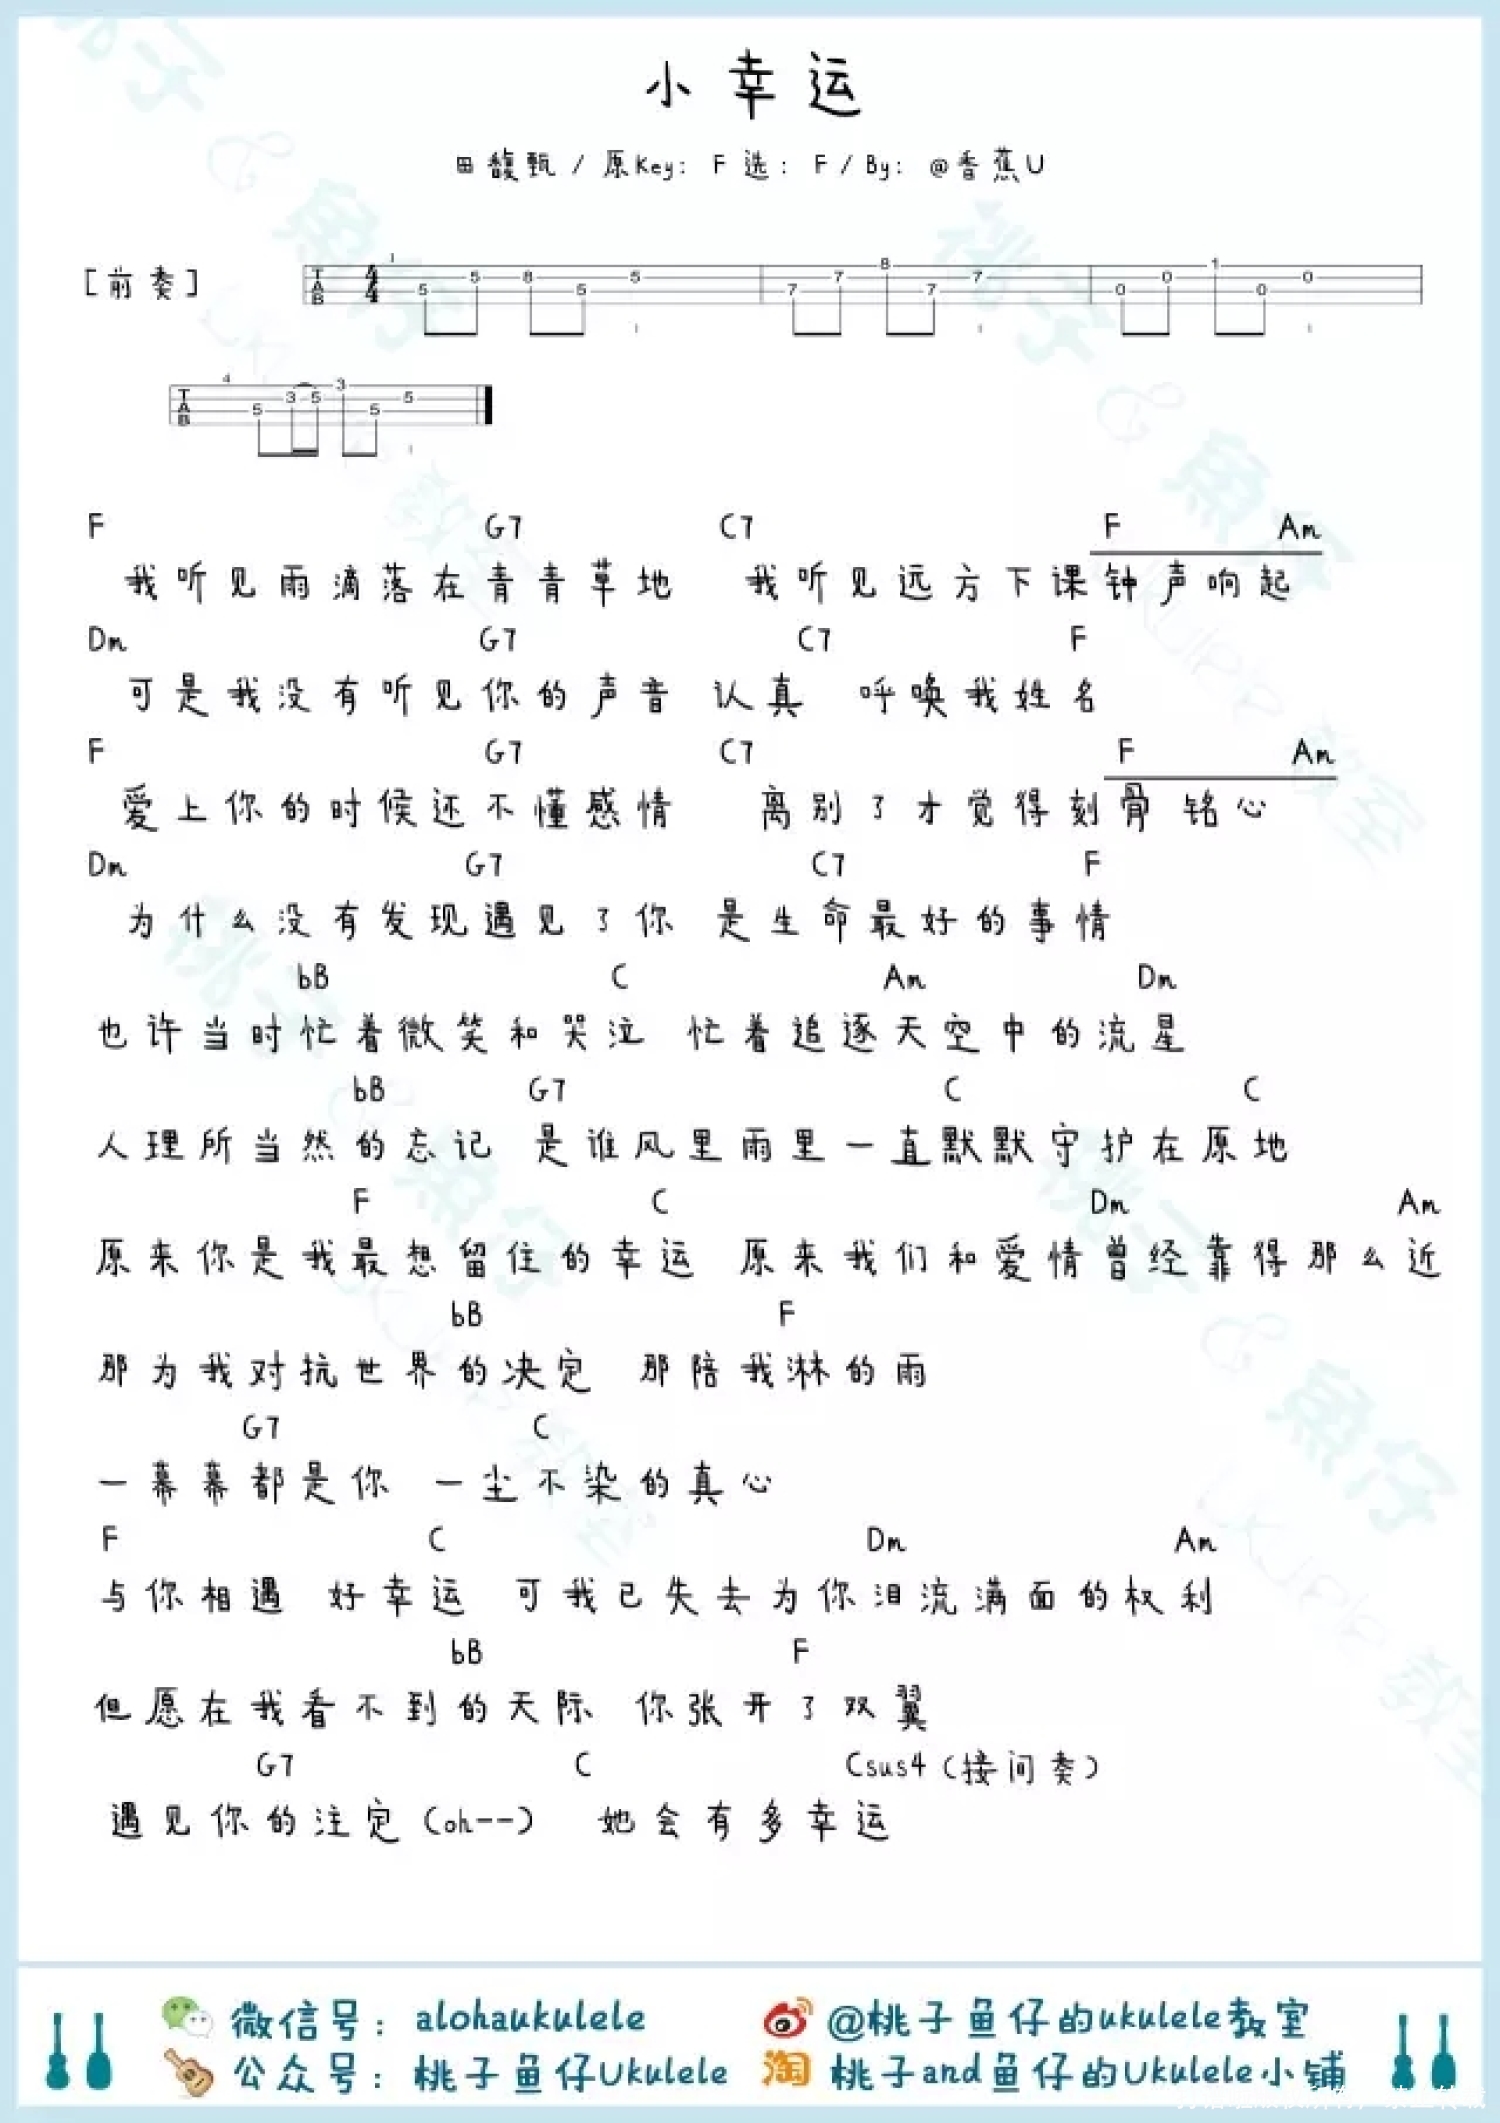 小幸运
田馥甄 / 原Key: F 选: F / By: @香蕉U
[前奏]
1
T A B 4 4 5 5 8 5 5 7 7 8 7 7 0 0 1 0 0
4
T A B 5 3 5 3 5 5
F G7 C7 F Am
我听见雨滴落在青青草地 我听见远方下课钟声响起
Dm G7 C7 F
可是我没有听见你的声音 认真 呼唤我姓名
F G7 C7 F Am
爱上你的时候还不懂感情 离别了才觉得刻骨 铭心
Dm G7 C7 F
为什么没有发现遇见了你 是生命最好的事情
bB C Am Dm
也许当时忙着微笑和哭泣 忙着追逐天空中的流星
bB G7 C C
人理所当然的忘记 是谁风里雨里一直默默守护在原地
F C Dm Am
原来你是我最想留住的幸运 原来我们和爱情曾经靠得那么近
bB F
那为我对抗世界的决定 那陪我淋的雨
G7 C
一幕幕都是你 一尘不染的真心
F C Dm Am
与你相遇 好幸运 可我已失去为你泪流满面的权利
bB F
但愿在我看不到的天际 你张开了双翼
G7 C Csus4 (接间奏)
遇见你的注定 (oh--) 她会有多幸运
微信号: alohaukulele @桃子鱼仔的ukulele教室
公众号: 桃子鱼仔Ukulele 淘 桃子and鱼仔的Ukulele小铺